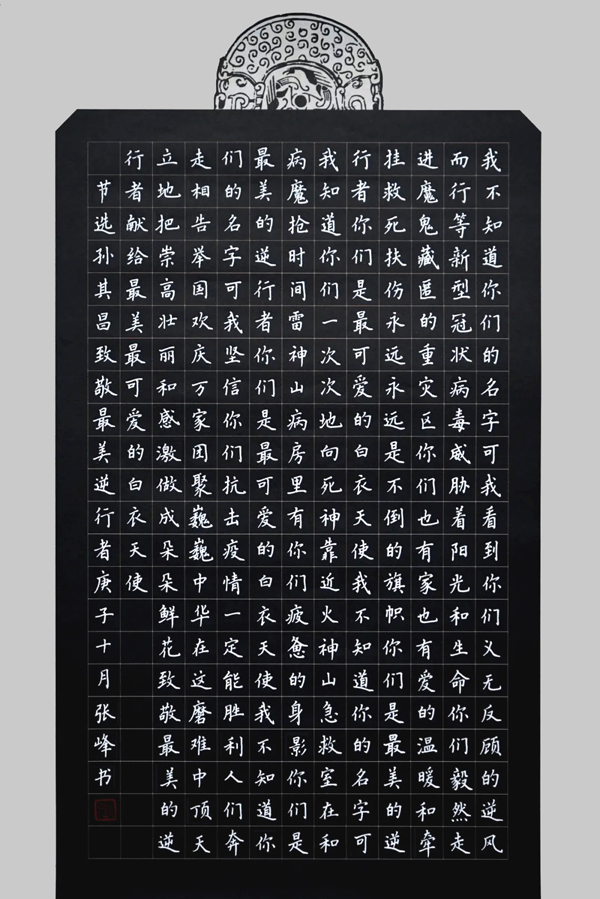 我不知道你们的名字可我看到你们义无反顾的逆风
而行等新型冠状病毒威胁着阳光和生命你们毅然走
进魔鬼藏匿的重灾区你们也有家也有爱的温暖和牵
挂救死扶伤永远永远是不倒的旗帜你们是最美的逆
行者你们是最可爱的白衣天使我不知道你的名字可
我知道你们一次次地向死神靠近火神山急救室在和
病魔抢时间雷神山病房里有你们疲惫的身影你们是
最美的逆行者你们是最可爱的白衣天使我不知道你
们的名字可我坚信你们抗击疫情一定能胜利人们奔
走相告举国欢庆万家团聚巍巍中华在这磨难中顶天
立地把崇高壮丽和感激做成朵朵鲜花致敬最美的逆
行者献给最美最可爱的白衣天使
节选孙其昌致敬最美逆行者庚子十月张峰书